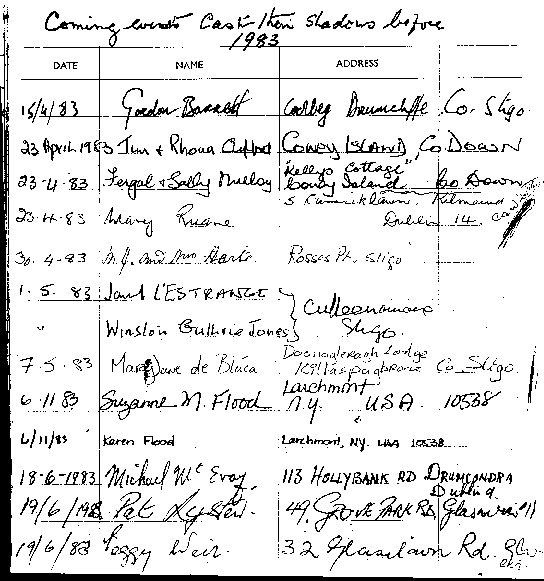 Coming events Cast their shadows before
1983
DATE NAME ADDRESS
15/4/83 Gordon Barrett Drumcliffe Co. Sligo
23 April 1983 Jim & Rhona Clifford Coney ISLAND, Co Down
23-4-83 Fergal & Sally Mulloy "Kellys Cottage" Coney Island Co Down
23-4-83 Mary Ruane 5 Dublin 14.
30-4-83 M.J. and Mrs Harte Rosses Pt. Sligo
1.5.83 Janet L'ESTRANGE
" Winston Guthrie Jones } Culleenamore Sligo
7-5.83 Mary Jane de Blaca Lodge Co Sligo
6.11.83 Suzanne M. Flood Larchmont, N.Y. USA 10538
6/11/83 Karen Flood Larchmont, NY. USA 10538
18-6-1983 Michael McEvoy 113 HOLLYBANK RD DRUMCONDRA Dublin 9
19/6/1983 Pat Lysten 49, GROVE PARK RD Glasnevin 11
19/6/83 Peggy Weir 32 Glasilawn Rd.